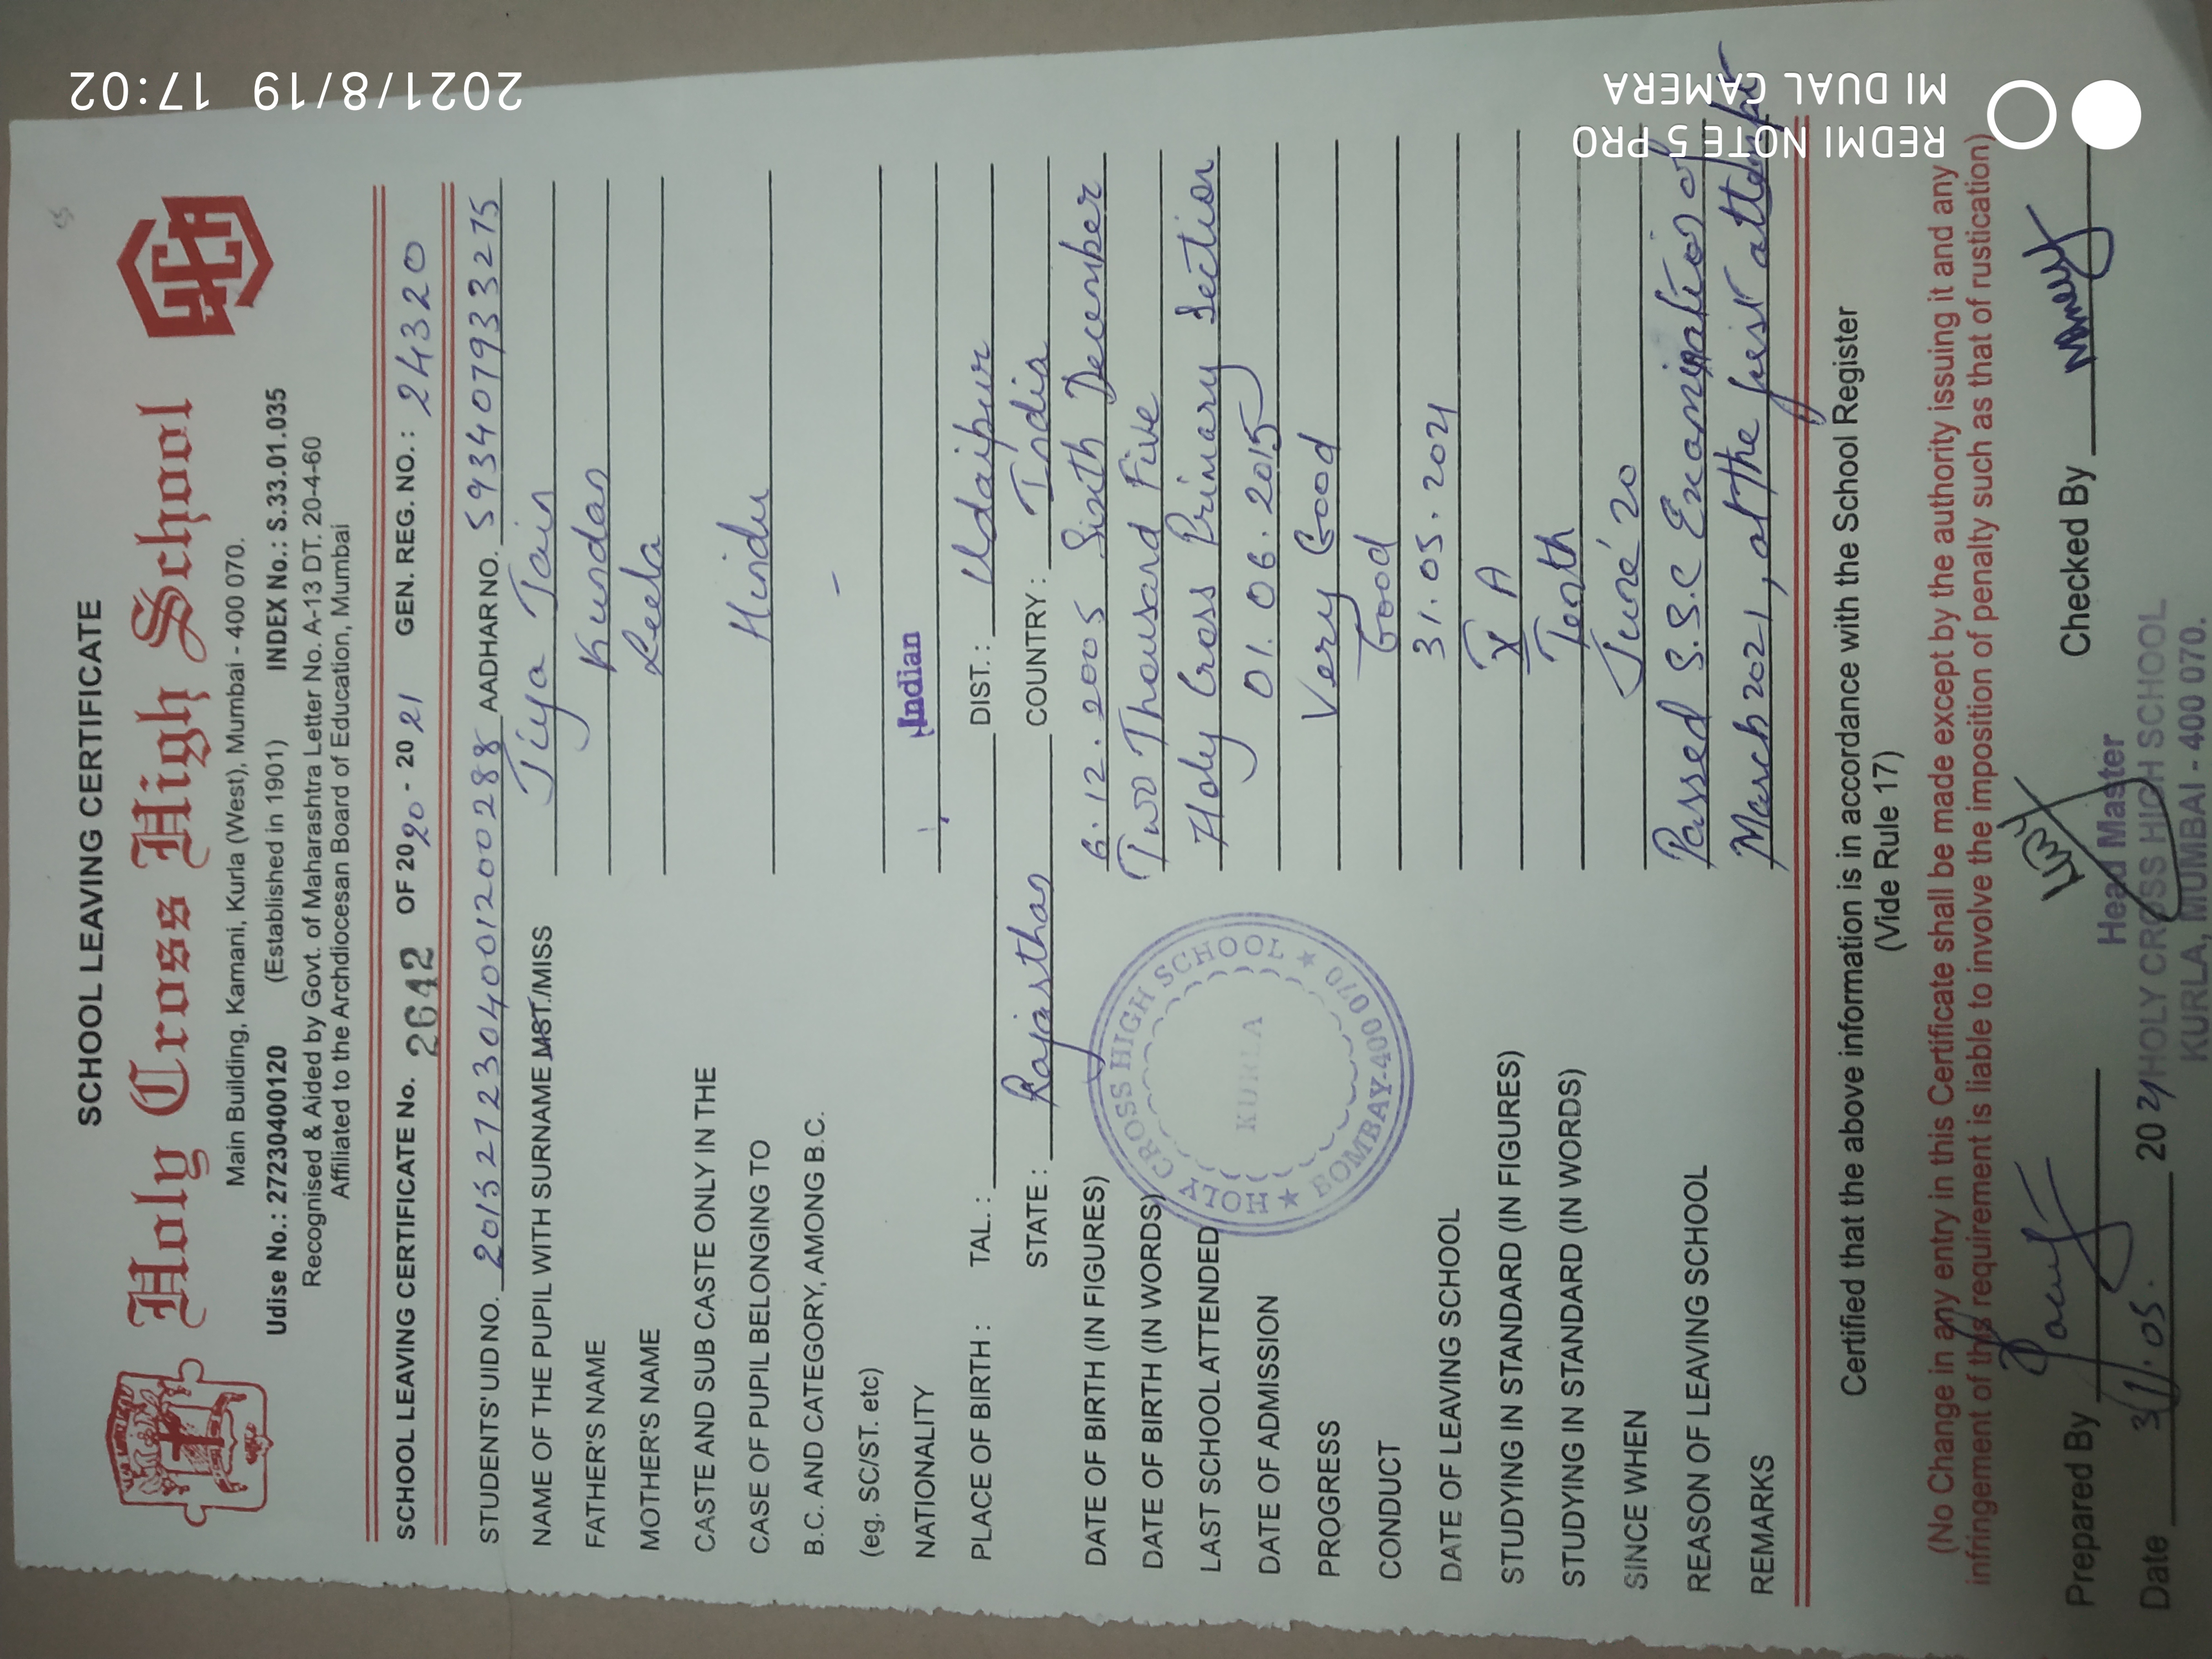 SCHOOL LEAVING CERTIFICATE
Holy Cross High School
Main Building, Kamani, Kurla (West), Mumbai - 400 070.
Udise No.: 27230400120 (Established in 1901) INDEX No.: S.33.01.035
Recognised & Aided by Govt. of Maharashtra Letter No. A-13 DT. 20-4-60
Affiliated to the Archdiocesan Board of Education, Mumbai
SCHOOL LEAVING CERTIFICATE No. 2642 OF 2020 - 2021 GEN. REG. NO.: 24320
STUDENTS' UID NO. 2015272304001200288 AADHAR NO. 593407933275
NAME OF THE PUPIL WITH SURNAME MST./MISS Jiya Jain
FATHER'S NAME Kundan
MOTHER'S NAME Leela
CASTE AND SUB CASTE ONLY IN THE
CASE OF PUPIL BELONGING TO Hindu
B.C. AND CATEGORY, AMONG B.C. -
(eg. SC/ST. etc)
NATIONALITY Indian
PLACE OF BIRTH : TAL. : DIST. : Udaipur
STATE : Rajasthan COUNTRY : India
DATE OF BIRTH (IN FIGURES) 6.12.2005 Sixth December
DATE OF BIRTH (IN WORDS) Two Thousand Five
LAST SCHOOL ATTENDED Holy Cross Primary Section
DATE OF ADMISSION 01.06.2015
PROGRESS Very Good
CONDUCT Good
DATE OF LEAVING SCHOOL 31.05.2021
STUDYING IN STANDARD (IN FIGURES) X A
STUDYING IN STANDARD (IN WORDS) Tenth
SINCE WHEN June' 20
REASON OF LEAVING SCHOOL Passed S.S.C Examination of
REMARKS March 2021, at the first attempt
HOLY CROSS HIGH SCHOOL ★ BOMBAY-400 070 ★
KURLA
Certified that the above information is in accordance with the School Register
(Vide Rule 17)
(No Change in any entry in this Certificate shall be made except by the authority issuing it and any
infringement of this requirement is liable to involve the imposition of penalty such as that of rustication)
Prepared By Checked By
Date 31.05. 2021
Head Master
HOLY CROSS HIGH SCHOOL
KURLA, MUMBAI - 400 070.
REDMI NOTE 5 PRO
MI DUAL CAMERA
2021/8/19 17:02